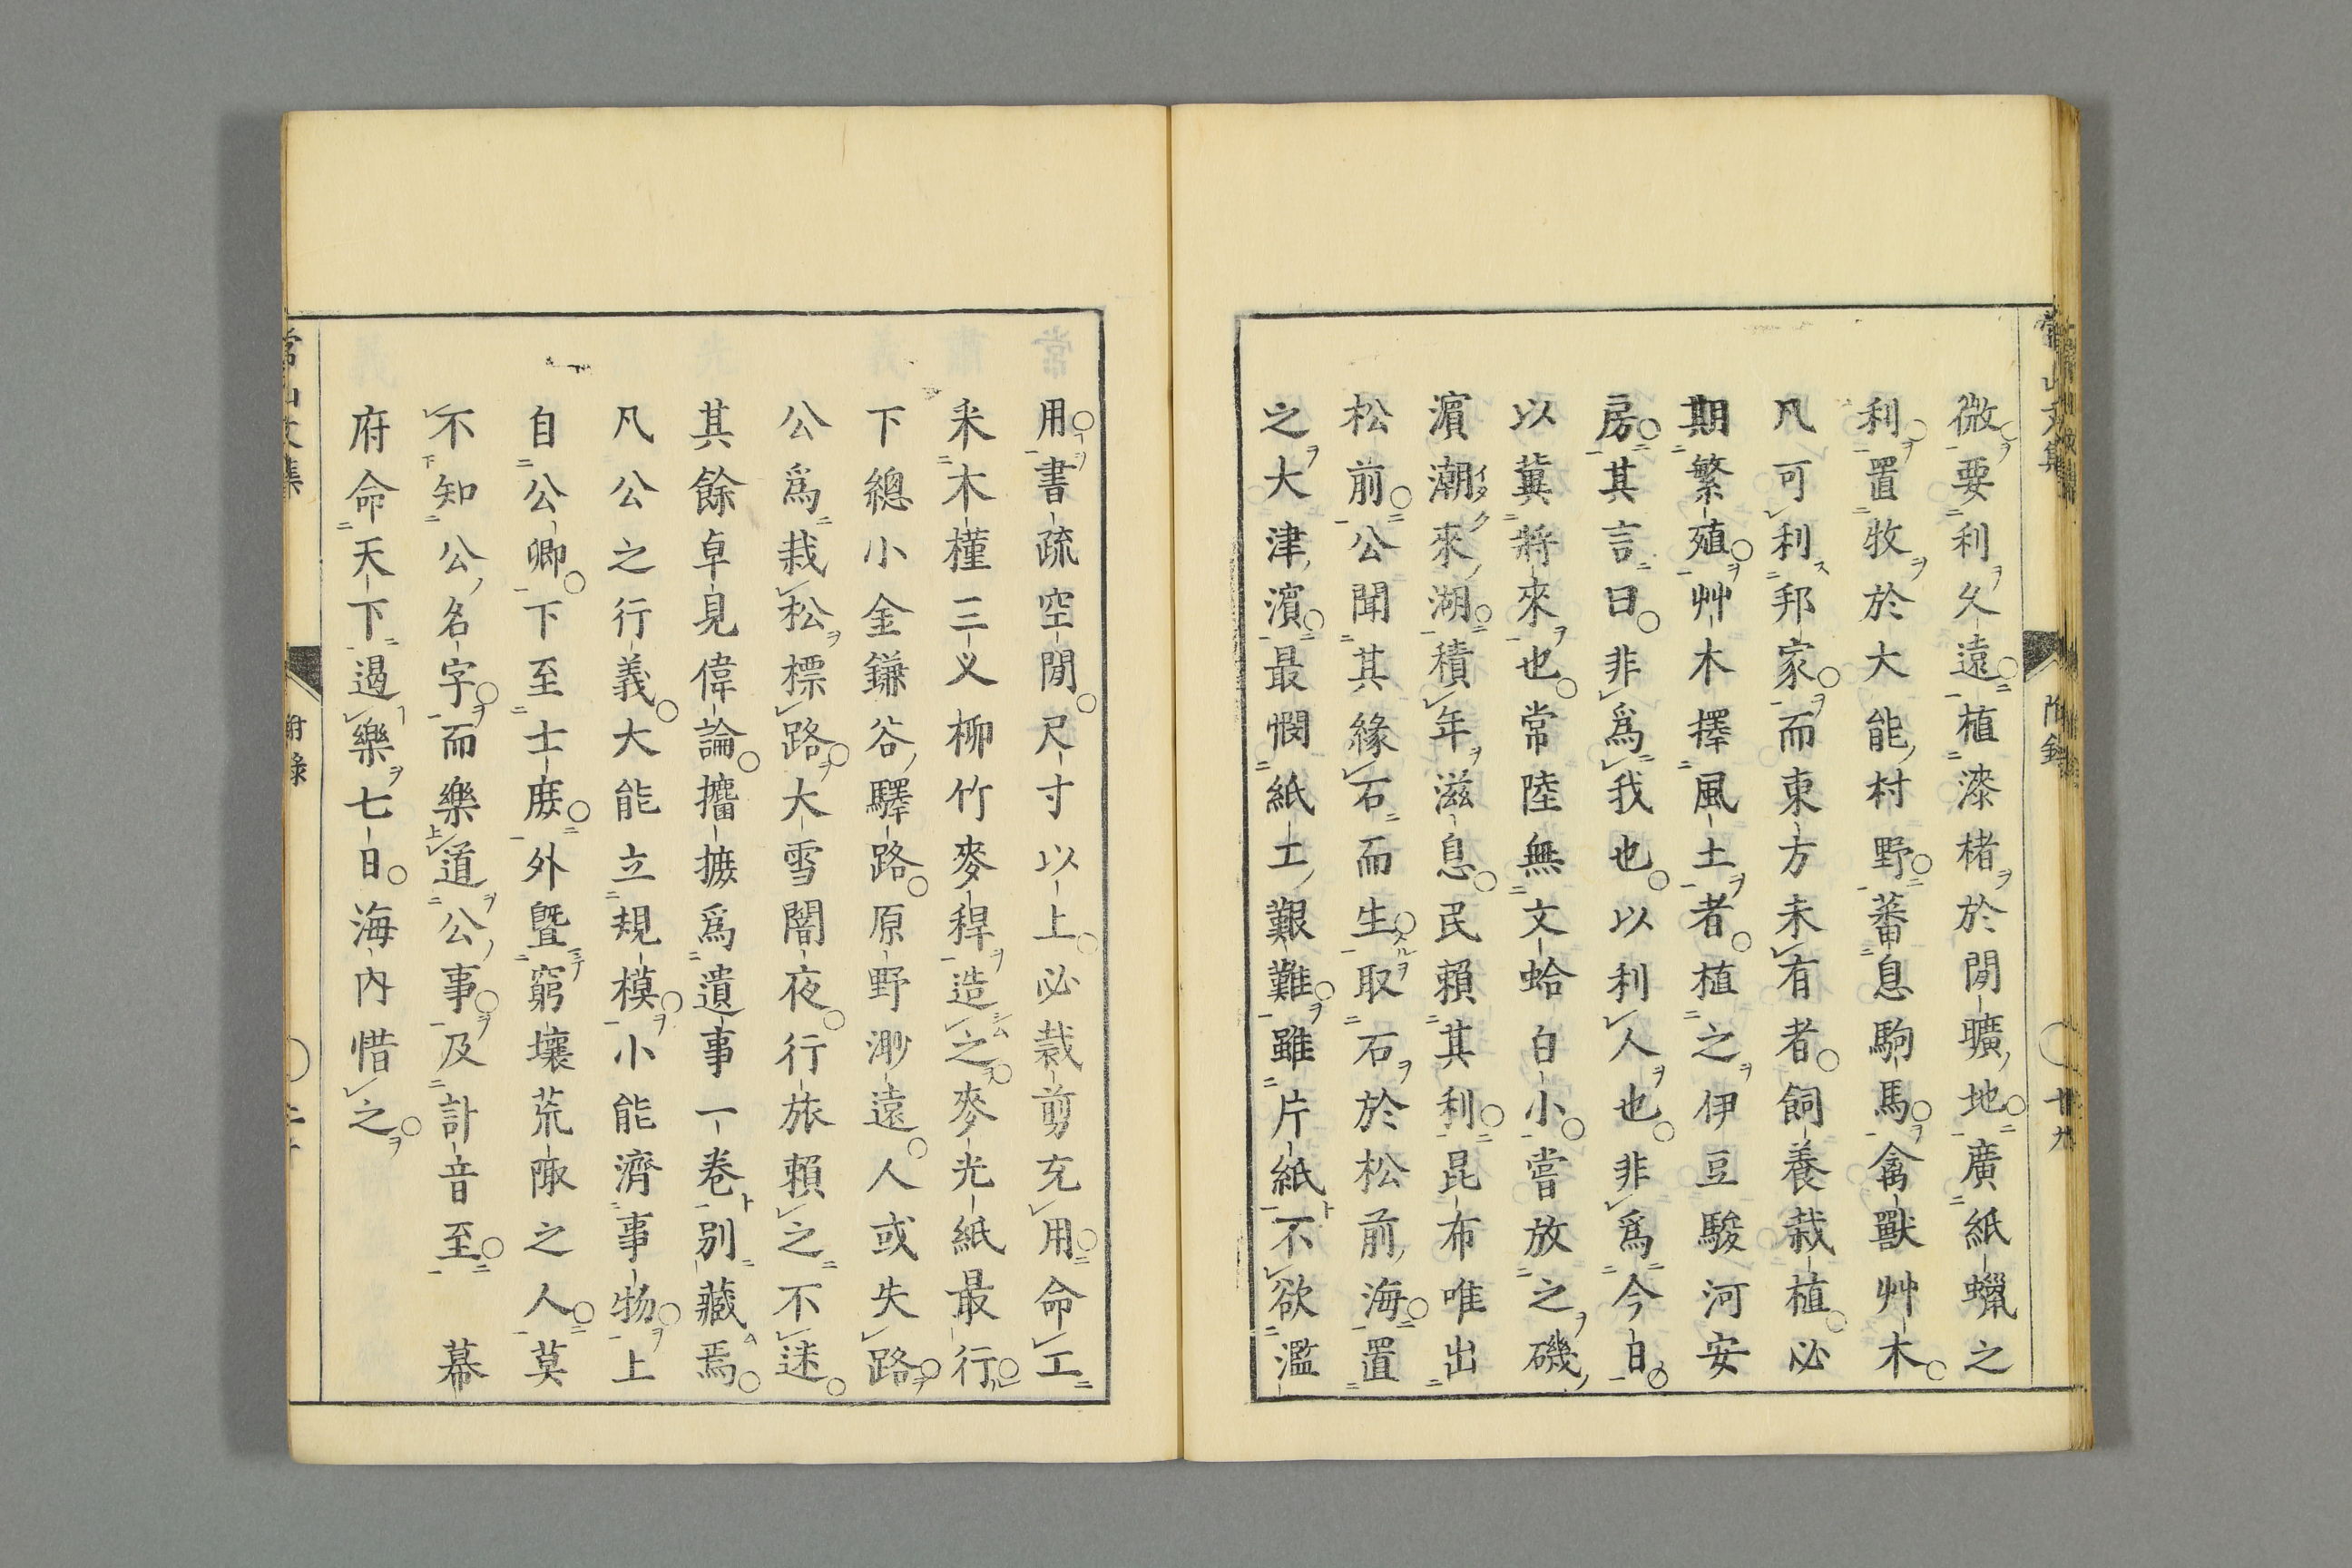 微要利久遠植漆楮於閒曠地廣紙蠟之
利置牧於大能村野蕃息駒馬禽獸艸木
凡可利邦家而東方未有者飼養栽植必
期繁殖艸木擇風土者植之伊豆駿河安
房其言曰非爲我也以利人也非爲今日
以冀將來也常陸無文蛤白小嘗放之磯
濵潮來湖積年滋息民賴其利昆布唯出
松前公聞其緣石而生取石於松前海置
之大津濵最憫紙工艱難雖片紙不欲濫
用書疏空閒尺寸以上必裁剪充用命工
采木槿三义柳竹麥稈造之麥光紙最行
下總小金鎌谷驛路原野渺遠人或失路
公爲栽松標路大雪闇夜行旅賴之不迷
其餘卓見偉論攟摭爲遺事一卷別藏焉
凡公之行義大能立規模小能濟事物上
自公卿下至士庶外曁窮壤荒陬之人莫
不知公名字而樂道公事及訃音至　幕
府命天下遏樂七日海內惜之
常山文集
附錄
廿九